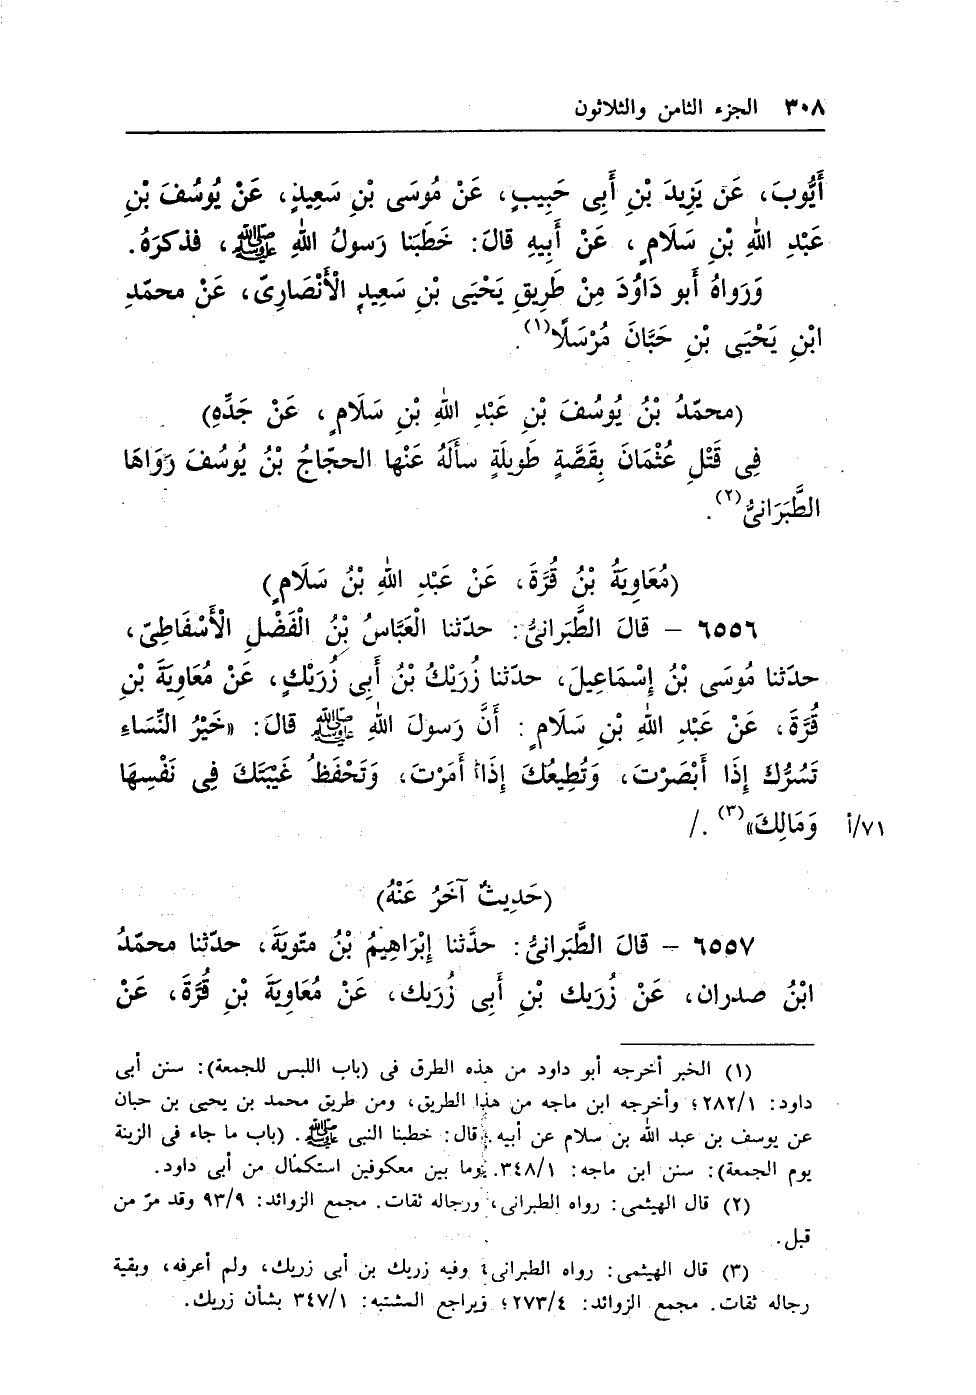 ٣٠٨ الجزء الثامن والثلاثون
أَيُّوبَ، عَن يَزِيدَ بْنِ أَبِى حَبِيبٍ، عَنْ مُوسَى بْنِ سَعِيدٍ، عَنْ يُوسُفَ بْنِ
عَبْدِ اللهِ بْنِ سَلَامٍ، عَنْ أَبِيهِ قالَ: خَطَبَنا رَسولُ اللهِ ﷺ، فذكرَهُ.
وَرَواهُ أَبو دَاوُدَ مِنْ طَرِيقِ يَحْيَى بْنِ سَعِيدٍ الْأَنْصَارِىّ، عَنْ محمّدِ
ابْنِ يَحْيَى بْنِ حَبَّانَ مُرْسَلًا(١).
(محمّدُ بْنُ يُوسُفَ بْنِ عَبْدِ اللهِ بْنِ سَلَامٍ، عَنْ جَدِّهِ)
فِى قَتْلِ عُثْمَانَ بِقَصَّةٍ طَويلَةٍ سأَلَهُ عَنْها الحجّاجُ بْنُ يُوسُفَ رَوَاهَا
الطَّبَرَانىُّ(٢).
(مُعَاوِيَةُ بْنُ قُرَّةَ، عَنْ عَبْدِ اللهِ بْنُ سَلَامٍ)
٦٥٥٦ - قالَ الطَّبَرانىُّ: حدّثنا الْعَبَّاسُ بْنُ الْفَضْلِ الْأَسْفَاطِىّ،
حدّثنا مُوسَى بْنُ إِسْمَاعِيلَ، حدّثنا زُرَيْكُ بْنُ أَبِى زُرَيْكٍ، عَنْ مُعَاوِيَةَ بْنِ
قُرَّةَ، عَنْ عَبْدِ اللهِ بْنِ سَلَامٍ: أَنَّ رَسولَ اللهِ ﷺ قالَ: «خَيْرُ النِّسَاءِ
تَسُرُّكَ إِذَا أَبْصَرْتَ، وَتُطِيعُكَ إِذَا أَمَرْتَ، وَتَحْفَظُ غَيْبَتَكَ فِى نَفْسِهَا
وَمَالِكَ»(٣). / ٧١/أ
(حَدِيثٌ آخَرُ عَنْهُ)
٦٥٥٧ - قالَ الطَّبَرانىُّ: حدَّثنا إِبْرَاهِيمُ بْنُ متّويَةَ، حدّثنا محمّدُ
ابْنُ صدران، عَنْ زُرَيك بْنِ أَبِى زُرَيك، عَنْ مُعَاوِيَةَ بْنِ قُرَّةَ، عَنْ
(١) الخبر أخرجه أبو داود من هذه الطرق فى (باب اللبس للجمعة): سنن أبى
داود: ٢٨٢/١؛ وأخرجه ابن ماجه من هذا الطريق، ومن طريق محمد بن يحيى بن حبان
عن يوسف بن عبد الله بن سلام عن أبيه. قال: خطبنا النبى ﷺ. (باب ما جاء فى الزينة
يوم الجمعة): سنن ابن ماجه: ٣٤٨/١. وما بين معكوفين استكمال من أبى داود.
(٢) قال الهيثمى: رواه الطبرانى، ورجاله ثقات. مجمع الزوائد: ٩٣/٩ وقد مرّ من
قبل.
(٣) قال الهيثمى: رواه الطبرانى؛ وفيه زريك بن أبى زريك، ولم أعرفه، وبقية
رجاله ثقات. مجمع الزوائد: ٢٧٣/٤؛ ويراجع المشتبه: ٣٤٧/١ بشأن زريك.